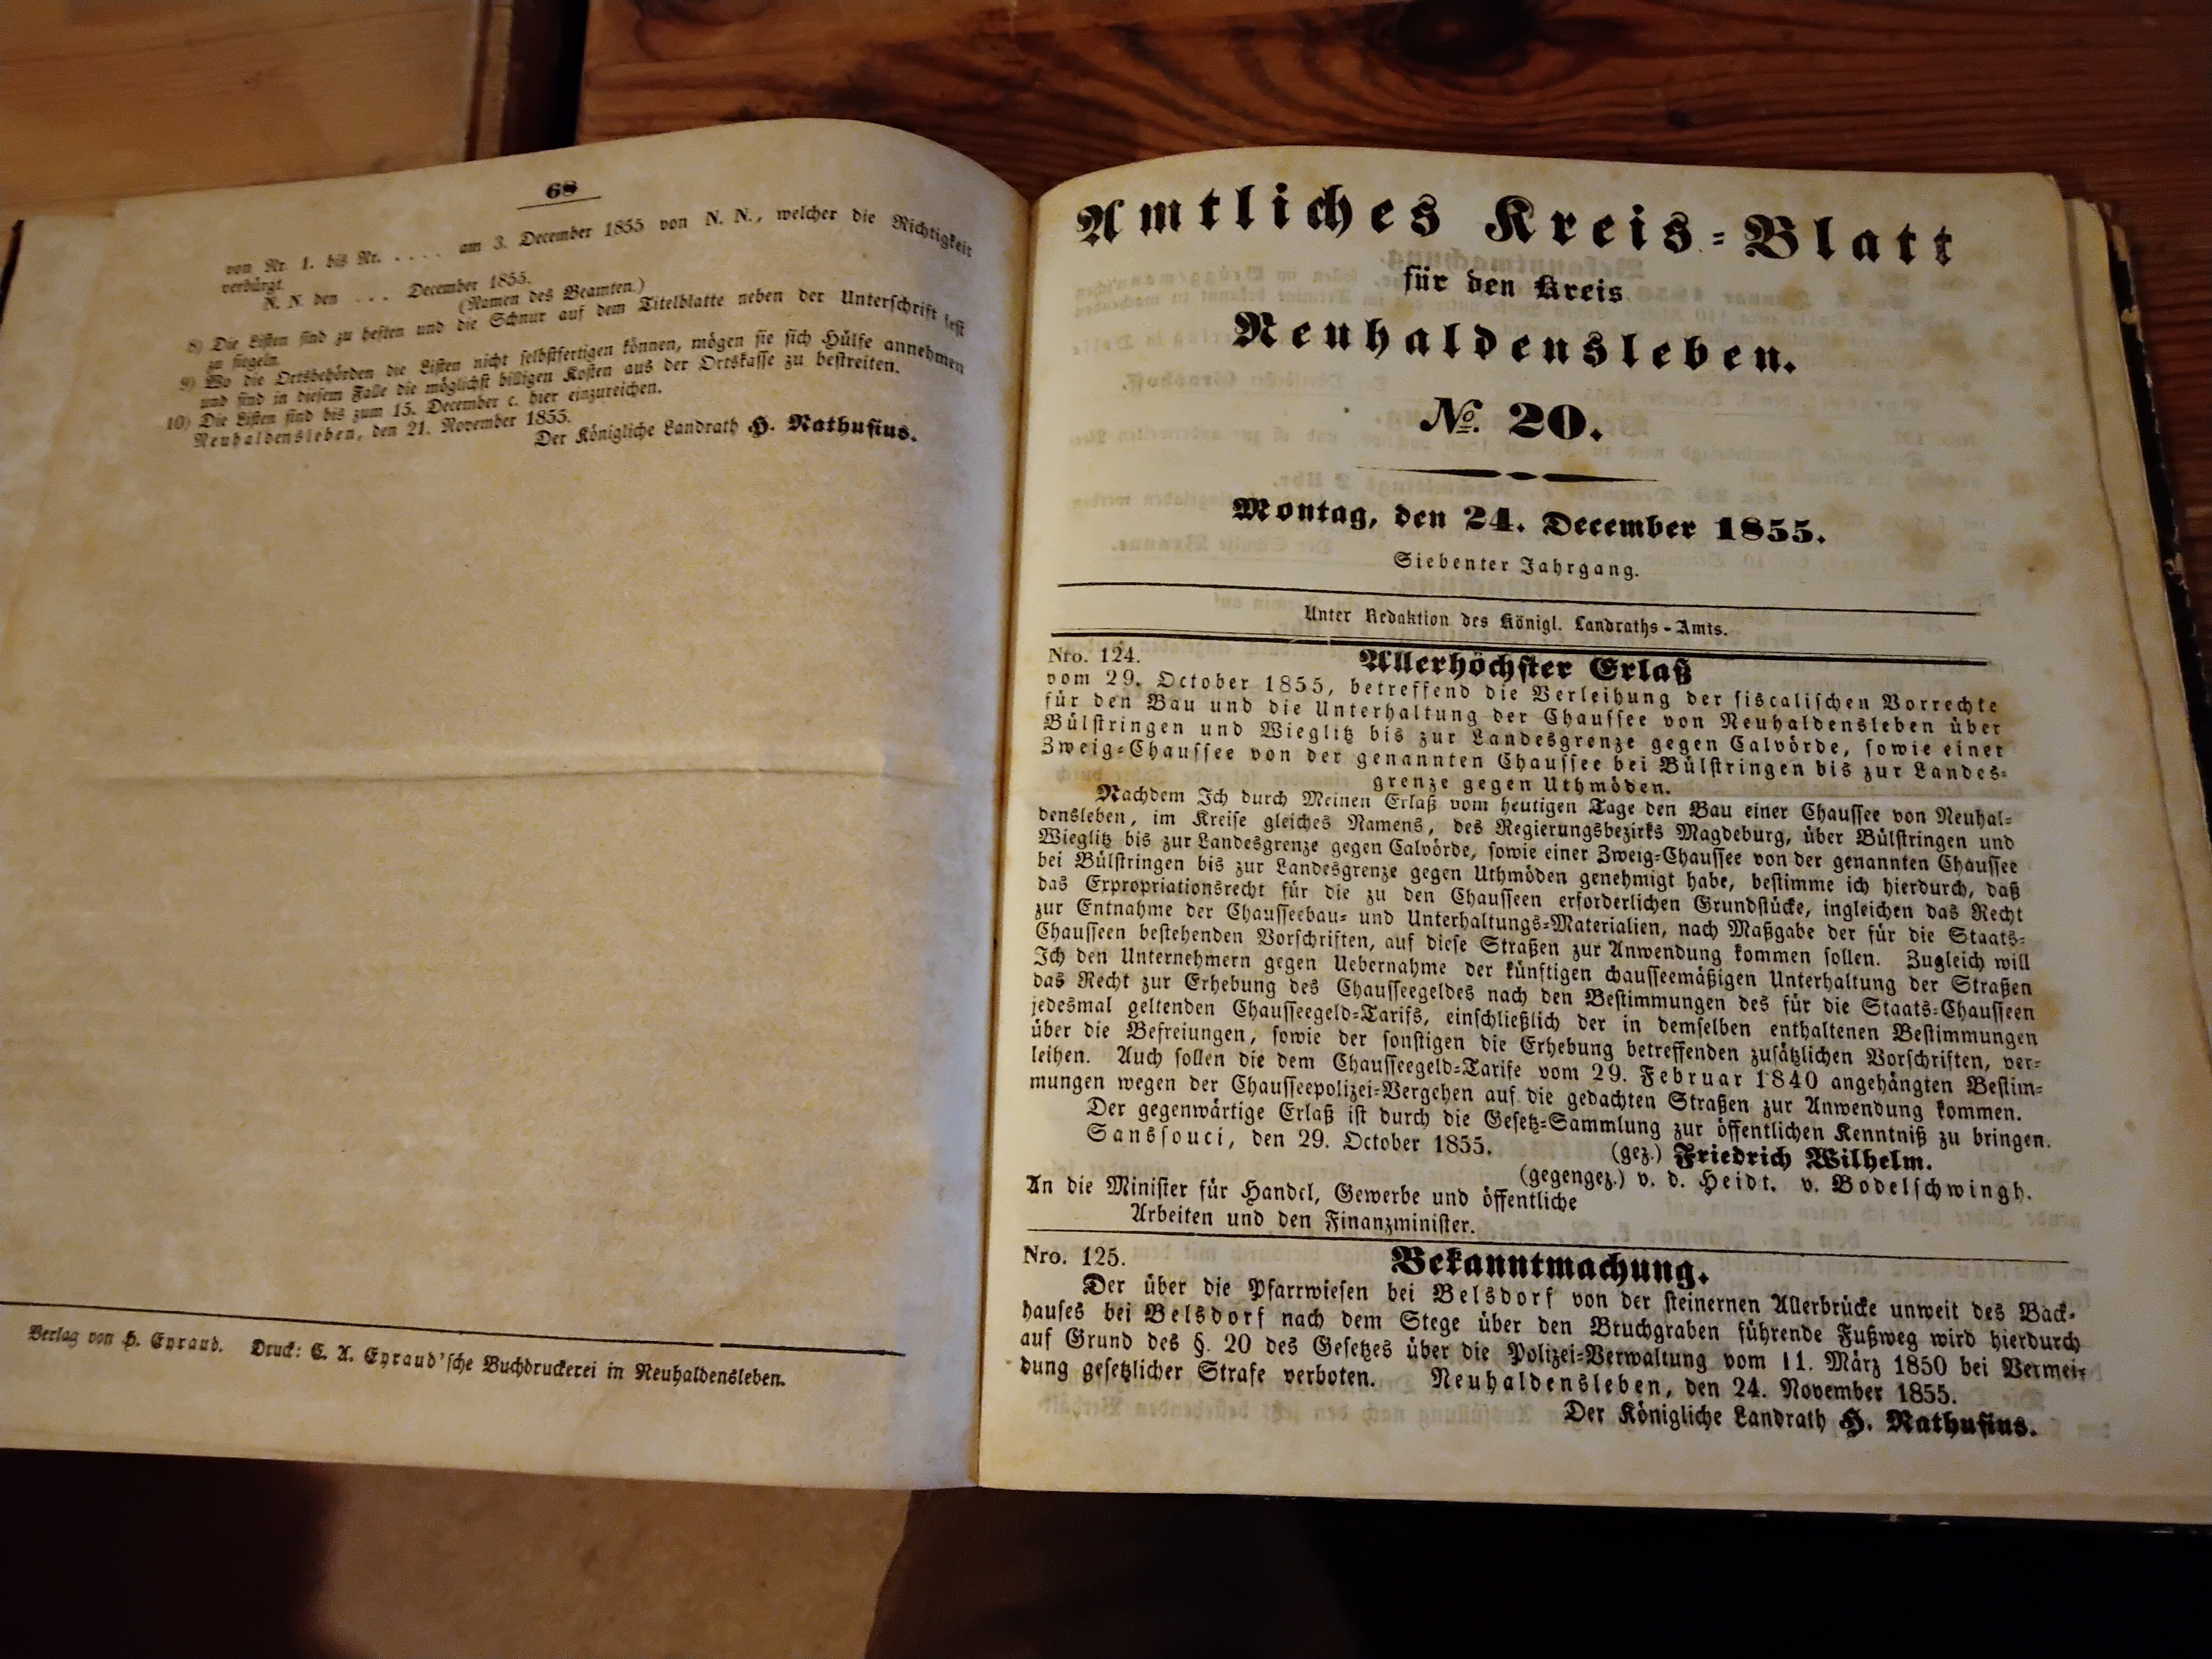 68
von Nr. 1. bis Nr. . . . . am 3. December 1855 von N. N., welcher die Richtigkeit
verbürgt.
N. N. den . . . December 1855.
(Namen des Beamten.)
8) Die Listen sind zu heften und die Schnur auf dem Titelblatte neben der Unterschrift fest
zu siegeln.
9) Wo die Ortsbehörden die Listen nicht selbstfertigen können, mögen sie sich Hülfe annehmen
und sind in diesem Falle die möglichst billigen Kosten aus der Ortskasse zu bestreiten.
10) Die Listen sind bis zum 15. December c. hier einzureichen.
Neuhaldensleben, den 21. November 1855.
Der Königliche Landrath H. Nathusius.
Verlag von H. Eyraud. Druck: C. A. Eyraud'sche Buchdruckerei in Neuhaldensleben.
Amtliches Kreis-Blatt
für den Kreis
Neuhaldensleben.
No. 20.
Montag, den 24. December 1855.
Siebenter Jahrgang.
Unter Redaktion des Königl. Landraths-Amts.
Nro. 124. Allerhöchster Erlaß
vom 29. October 1855, betreffend die Verleihung der fiscalischen Vorrechte
für den Bau und die Unterhaltung der Chaussee von Neuhaldensleben über
Bülstringen und Wieglitz bis zur Landesgrenze gegen Calvörde, sowie einer
Zweig-Chaussee von der genannten Chaussee bei Bülstringen bis zur Landes-
grenze gegen Uthmöden.
Nachdem Ich durch Meinen Erlaß vom heutigen Tage den Bau einer Chaussee von Neuhal-
densleben, im Kreise gleiches Namens, des Regierungsbezirks Magdeburg, über Bülstringen und
Wieglitz bis zur Landesgrenze gegen Calvörde, sowie einer Zweig-Chaussee von der genannten Chaussee
bei Bülstringen bis zur Landesgrenze gegen Uthmöden genehmigt habe, bestimme ich hierdurch, daß
das Expropriationsrecht für die zu den Chausseen erforderlichen Grundstücke, ingleichen das Recht
zur Entnahme der Chausseebau- und Unterhaltungs-Materialien, nach Maßgabe der für die Staats-
Chausseen bestehenden Vorschriften, auf diese Straßen zur Anwendung kommen sollen. Zugleich will
Ich den Unternehmern gegen Uebernahme der künftigen chausseemäßigen Unterhaltung der Straßen
das Recht zur Erhebung des Chausseegeldes nach den Bestimmungen des für die Staats-Chausseen
jedesmal geltenden Chausseegeld-Tarifs, einschließlich der in demselben enthaltenen Bestimmungen
über die Befreiungen, sowie der sonstigen die Erhebung betreffenden zusätzlichen Vorschriften, ver-
leihen. Auch sollen die dem Chausseegeld-Tarife vom 29. Februar 1840 angehängten Bestim-
mungen wegen der Chausseepolizei-Vergehen auf die gedachten Straßen zur Anwendung kommen.
Der gegenwärtige Erlaß ist durch die Gesetz-Sammlung zur öffentlichen Kenntniß zu bringen.
Sanssouci, den 29. October 1855.
(gez.) Friedrich Wilhelm.
(gegengez.) v. d. Heidt. v. Bodelschwingh.
An die Minister für Handel, Gewerbe und öffentliche
Arbeiten und den Finanzminister.
Nro. 125. Bekanntmachung.
Der über die Pfarrwiesen bei Belsdorf von der steinernen Allerbrücke unweit des Back-
hauses bei Belsdorf nach dem Stege über den Bruchgraben führende Fußweg wird hierdurch
auf Grund des §. 20 des Gesetzes über die Polizei-Verwaltung vom 11. März 1850 bei Vermei-
dung gesetzlicher Strafe verboten. Neuhaldensleben, den 24. November 1855.
Der Königliche Landrath H. Nathusius.